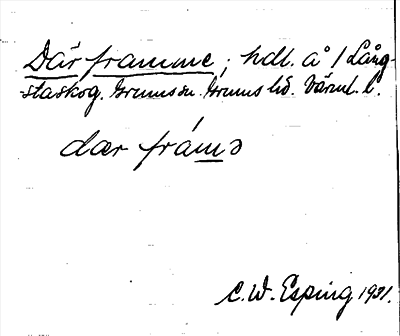 Där framme; hdl. å 1 Lång-
staskog. Grums sn. Grums hd. Värml. l.
dær frámə
C. W. Esping 1931.